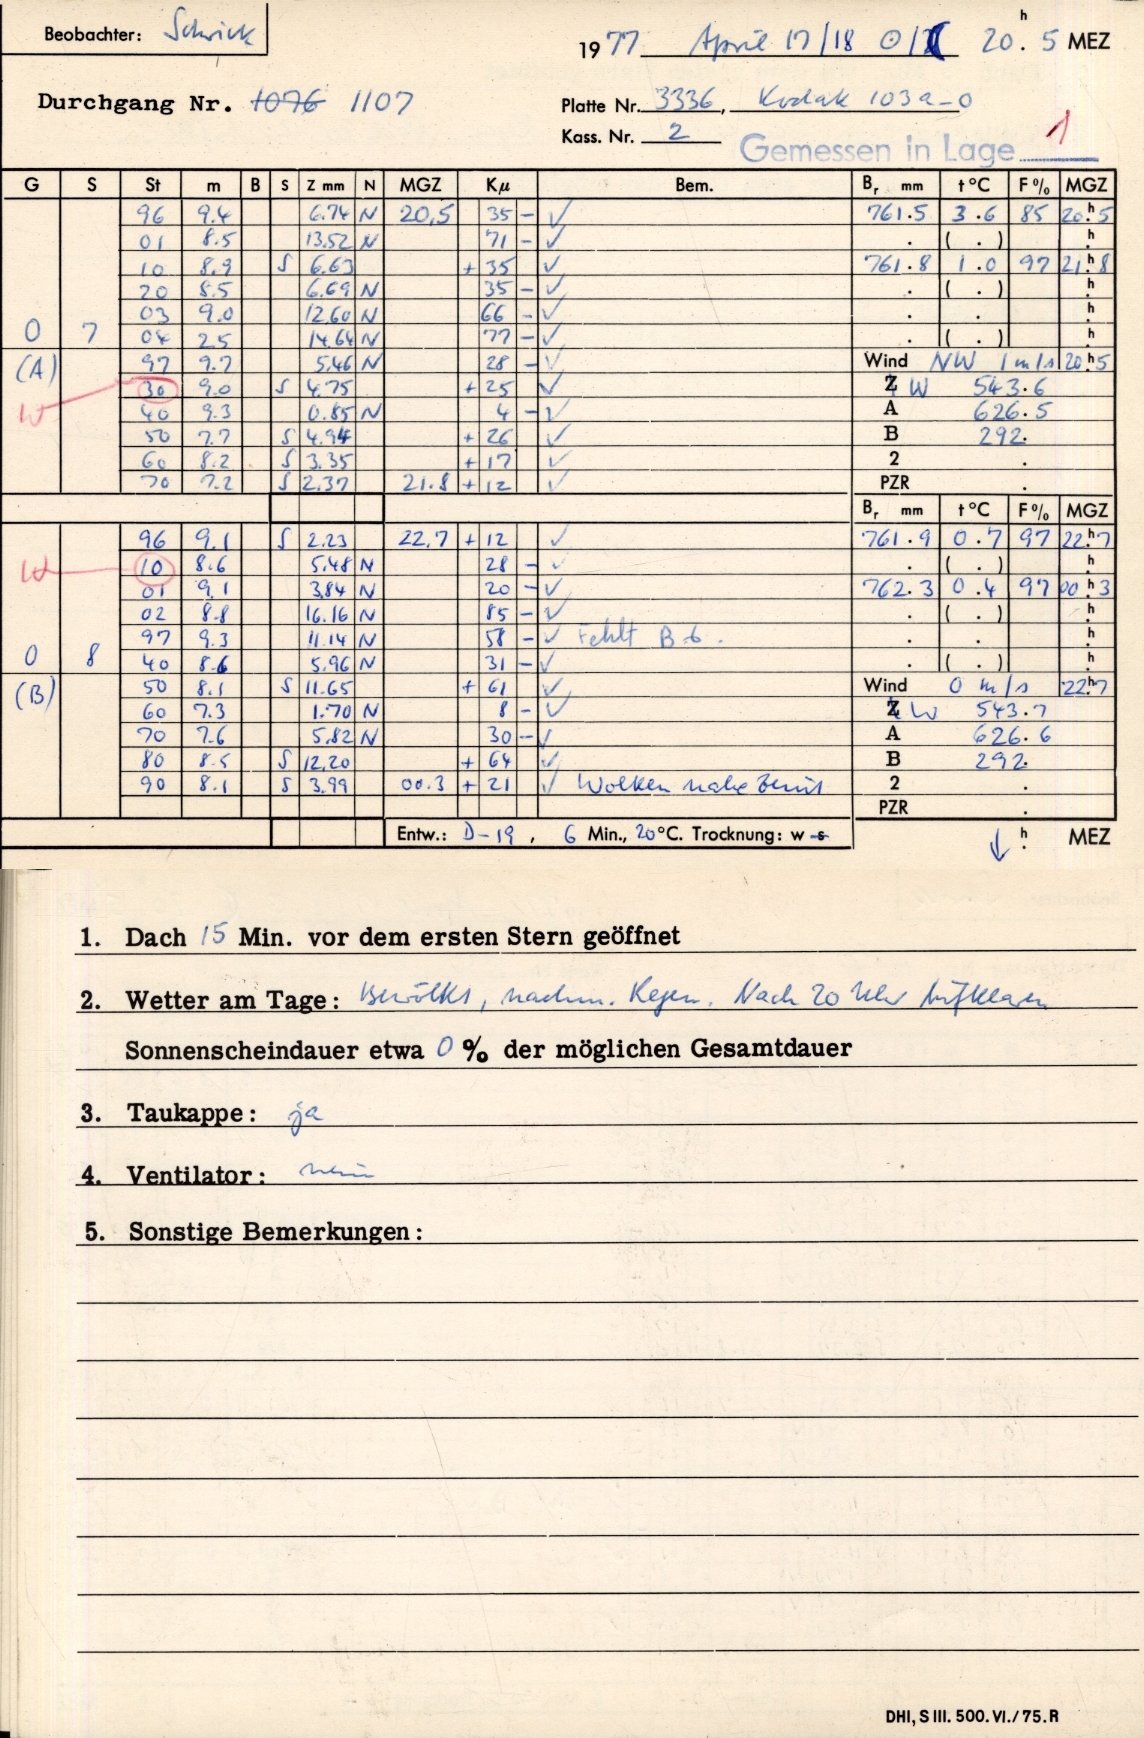 Beobachter: Schrick
1977 April 17/18 ⊙/☾ 20h.5 MEZ
Durchgang Nr. 1076 1107
Platte Nr. 3336, Kodak 103a-O
Kass. Nr. 2
Gemessen in Lage 1
G S St m B S Z mm N MGZ Kµ Bem. Br mm t °C F% MGZ
96 9.4 6.74 N 20,5 35 - ✓ 761.5 3.6 85 20h.5
01 8.5 13.52 N 71 - ✓ . ( . ) h.
10 8.9 S 6.63 + 35 ✓ 761.8 1.0 97 21h.8
20 8.5 6.69 N 35 - ✓ . ( . ) h.
03 9.0 12.60 N 66 - ✓ . . h.
0 7 04 2.5 14.64 N 77 - ✓ . ( . ) h.
(A) 97 9.7 5.46 N 28 - ✓ Wind NW 1 m/s 20h.5
W 30 9.0 S 4.75 + 25 ✓ Z W 543.6
40 9.3 0.85 N 4 - ✓ A 626.5
50 7.7 S 4.94 + 26 ✓ B 292.
60 8.2 S 3.35 + 17 ✓ 2 .
70 7.2 S 2.37 21.8 + 12 ✓ PZR .
Br mm t °C F% MGZ
96 9.1 S 2.23 22,7 + 12 ✓ 761.9 0.7 97 22h.7
W 10 8.6 5.48 N 28 - ✓ . ( . ) h.
01 9.1 3.84 N 20 - ✓ 762.3 0.4 97 00h.3
02 8.8 16.16 N 85 - ✓ . ( . ) h.
97 9.3 11.14 N 58 - ✓ Fehlt B6. . . h.
0 8 40 8.6 5.96 N 31 - ✓ . ( . ) h.
(B) 50 8.1 S 11.65 + 61 ✓ Wind 0 m/s 22h.7
60 7.3 1.70 N 8 - ✓ Z W 543.7
70 7.6 5.82 N 30 - ✓ A 626.6
80 8.5 S 12.20 + 64 ✓ B 292.
90 8.1 S 3.99 00.3 + 21 ✓ Wolken nahe Zenit 2 .
PZR .
Entw.: D-19, 6 Min., 20°C. Trocknung: w s ↓ h. MEZ
1. Dach 15 Min. vor dem ersten Stern geöffnet
2. Wetter am Tage: Bewölkt, nachm. Regen. Nach 20 Uhr Aufklaren
Sonnenscheindauer etwa 0 % der möglichen Gesamtdauer
3. Taukappe: ja
4. Ventilator: nein
5. Sonstige Bemerkungen:
DHI, S III. 500. VI./75. R